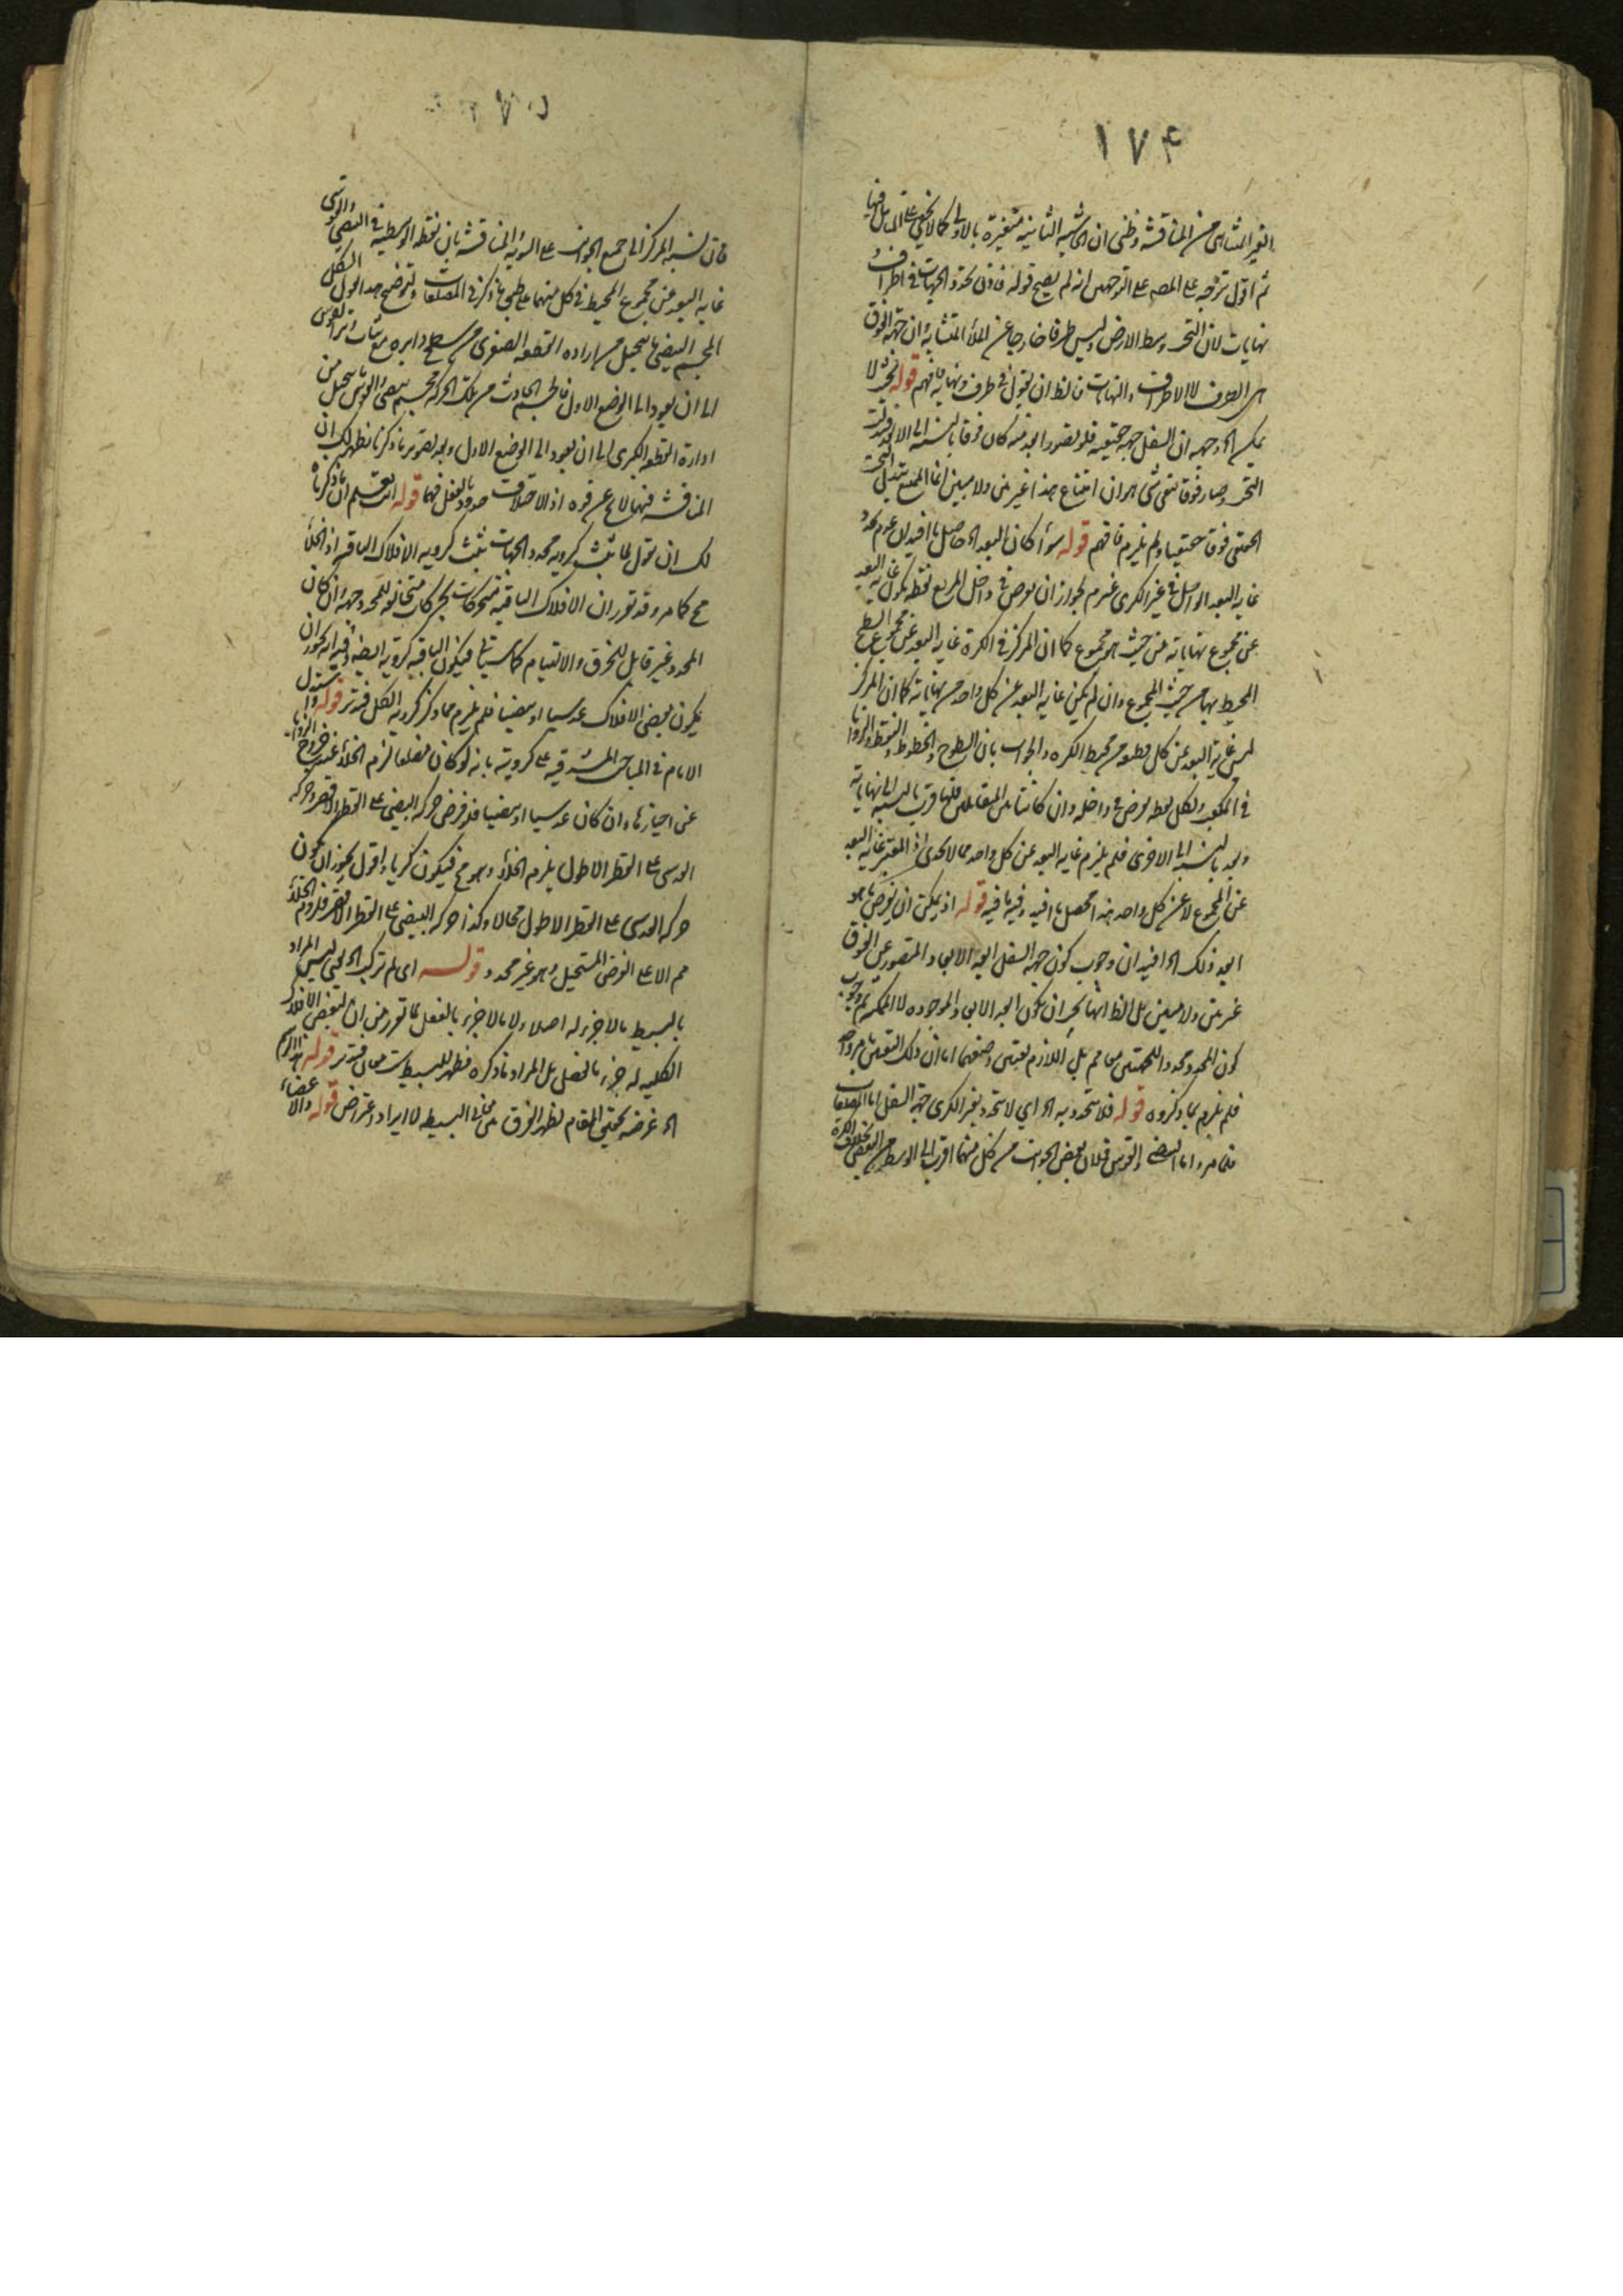 ١٧۴
الغير المتناهى من المناقشة وظنى ان الشبهة الثانية متغيرة بالاولى كما لا يخفى على المتأمل فيها
ثم اقول توجه على المصـ على التوجهين انه لم يصح قوله فاذن تحدد الجهات فى اطراف
نهايات لان التحت وسط الارض وليس طرفا خارجا عن الملأ المتشابه وان جهة الفوق
هى الطرف لا الاطراف والنهايات فالظ ان يقول فى طرف ونهاية فافهم قوله لا
يمكن الخ وجهه ان السفل جهة حقيقية فلو تصور ابعد منه كان فوقا بالنسبة الى الابعد
التحت وصار فوقا بقى شئ هو ان امتناع هذا غير بين ولا مبين انما الممتنع تبدل التحت
الحقيقى فوقا حقيقيا ولم يلزم فافهم قوله سواء كان البعد الخ حاصل ما افيد ان عدم تحدد
غاية البعد الداخل فى غير الكرى غير لجواز ان يفرض فى داخل المربع نقطة تكون غاية البعد
عن مجموع نهاياته من حيث هو مجموع كما ان المركز فى الكرة غاية البعد عن مجموع السطح
المحيط بها من حيث المجموع وان لم يكن غاية البعد عن كل واحد من نهاياته كما ان المركز
ليس غاية البعد عن كل نقطة من محيط الكرة والجواب بان السطوح والخطوط والنقط والزوايا
فى المكعب ولكل نقطة تفرض فى داخله وان كانت المتقابلين فلها قرب بالنسبة الى نهاياته
وبعد بالنسبة الى الاخرى فلم يلزم غاية البعد عن كل واحد مما لا يجدى اذ المعتبر غاية البعد
عن المجموع لا عن كل واحد هذا محصل ما افيد وفيه ما فيه قوله اذ يمكن ان يفرض ما هو
ابعد من ذلك الخ افيد ان وجوب كون جهة السفل ابعد الابعاد المتصور عن الفوق
غير بين ولا مبين بل الظ انها يجب ان يكون ابعد الابعاد الموجودة لا الممكنة ثم وجوب
كون المحدد محددا للجهتين معا مم بل اللازم تعين وضعهما اما ان ذلك التعين
فلم يلزم مما ذكروه قوله فلا تتحدد به الخ اى لا تتحدد بغير الكرى جهة السفل اما المضلعات
فلما مر واما البيضى والعدسى فلان بعض الجوانب من كل منهما اقرب الى الوسط من البعض بخلاف الكرة
١٧٥
فان نسبة المركز الى جميع الجوانب على السوية المناقشة بان نقطة الوسطية فى البيضى والعدسى
غاية البعد عن مجموع المحيط فى كل منهما على طبق ما ذكر فى المضلعات ولتوضيح هذا نقول الشكل
المجسم البيضى ما يحصل من ادارة القطعة الصغرى من سطح دايرة مع ثبات وتر القوس
الى ان يعود الى الوضع الاول فالجسم الحادث من تلك الحركة مجسم بيضى والعدسى ما يحصل من
ادارة القطعة الكبرى الى ان يعود الى الوضع الاول وبعد تصوير ما ذكرنا نظهر لك ان
المناقشة فيها لا يخ عن قوة اذ الاختلاف موجود بالفعل فيها قوله ان ما ذكرناه
لك ان تقول لما ثبت كروية محدد الجهات يثبت كروية الافلاك الباقية اذ الخلأ
مح كما مر وقد تقرر ان الافلاك الباقية متحركات بحركات متخالفة للمحدد جهة وان كان
المحدد غير قابل للخرق والالتيام كما سيأتى فيكون الباقية كروية ايضا وفيه انه يجوز ان
يكون بعض الافلاك عدسيا او بيضيا فلم يلزم مما ذكر كروية الكل فتدبر قوله واستدل
الامام فى المباحث المشرقية على كرويته بانه لو كان مضلعا لزم الخلأ عند خروج الزوايا
عن احيازها وان كان عدسيا او بيضيا فلو فرض حركة البيضى على القطر الاقصر وحركة
العدسى على القطر الاطول يلزم الخلأ وهو مح فيكون كريا واقول يجوز ان يكون
حركة العدسى على القطر الاطول محالا وكذا حركة البيضى على القطر الاقصر فلزوم الخلأ
مم الا على الفرض المستحيل وهو غير محدد وقوله اى لم تركب الخ يعنى ليس المراد
بالبسيط ما لا جزء له اصلا ولا ما لا جزء بالفعل لما تقرر من ان لبعض الافلاك
الكلية له جزء بالفعل بل المراد ما ذكره فظهر للبسيط ثلث معان فتدبر قوله
الخ غرضه تحقيق المقام ليظهر الفرق بين معانى البسيط لا ايراد واعتراض قوله والاعضاء